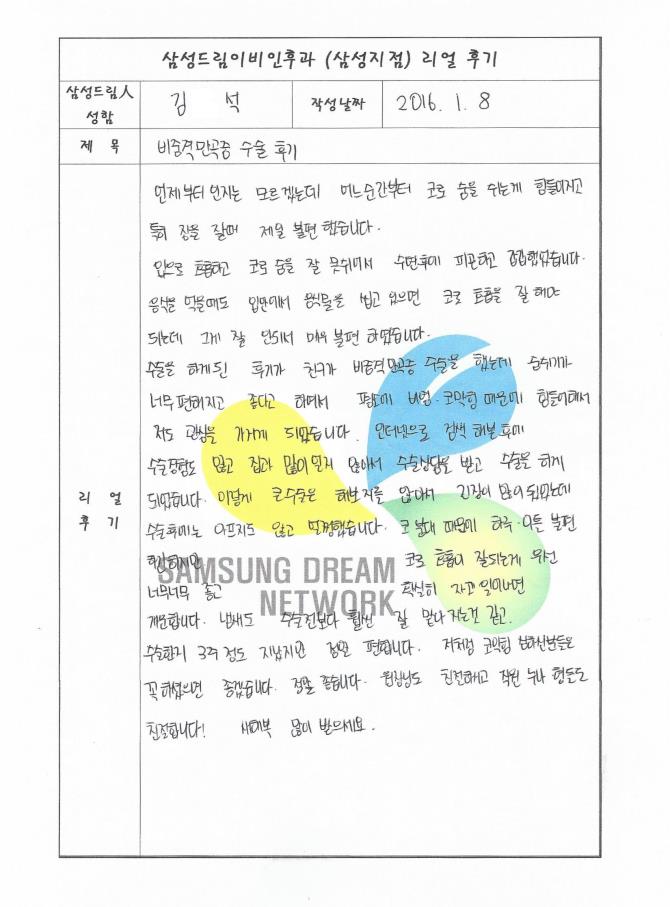 삼성드림이비인후과 (삼성지점) 리얼 후기
삼성드림人 성함
김 석
작성날짜
2016. 1. 8
제 목
비중격만곡증 수술 후기
리 얼 후 기
언제부터 인지는 모르겠는데 어느순간부터 코로 숨을 쉬는게 힘들어지고
특히 잠을 잘때 제일 불편 했습니다.
입으로 호흡하고 코로 숨을 잘 못쉬어서 수면후에 피곤하고 갑갑했었습니다.
음식을 먹을때도 입안에서 음식물을 씹고 있으면 코로 호흡을 잘 해야
되는데 그게 잘 안되서 매우 불편 하였습니다.
수술을 하게된 후기가 친구가 비중격만곡증 수술을 했는데 숨쉬기가
너무 편해지고 좋다고 하여서 평소에 비염·코막힘 때문에 힘들어해서
저도 관심을 가지게 되었습니다. 인터넷으로 검색 해본후에
수술경험도 많고 집과 멀어 않아서 수술상담을 받고 수술을 하게
되었습니다. 이렇게 큰수술은 해보지를 않아서 긴장이 많이 되었는데
수술후에는 아프지도 않고 멀쩡했습니다. 코 솜때문에 하루·이틀 불편
하긴하지만 코로 호흡이 잘되는게 우선
너무너무 좋고 확실히 자고 일어나면
SAMSUNG DREAM
NETWORK
개운합니다. 냄새도 수술전보다 훨씬 잘 맡아 지는것 같고.
수술한지 3주 정도 지났지만 정말 편합니다. 저처럼 코막힘 심하신분들은
꼭 하셨으면 좋겠습니다. 정말 좋습니다. 원장님도 친절하시고 직원 누나 형들도
친절합니다! 새해복 많이 받으세요.